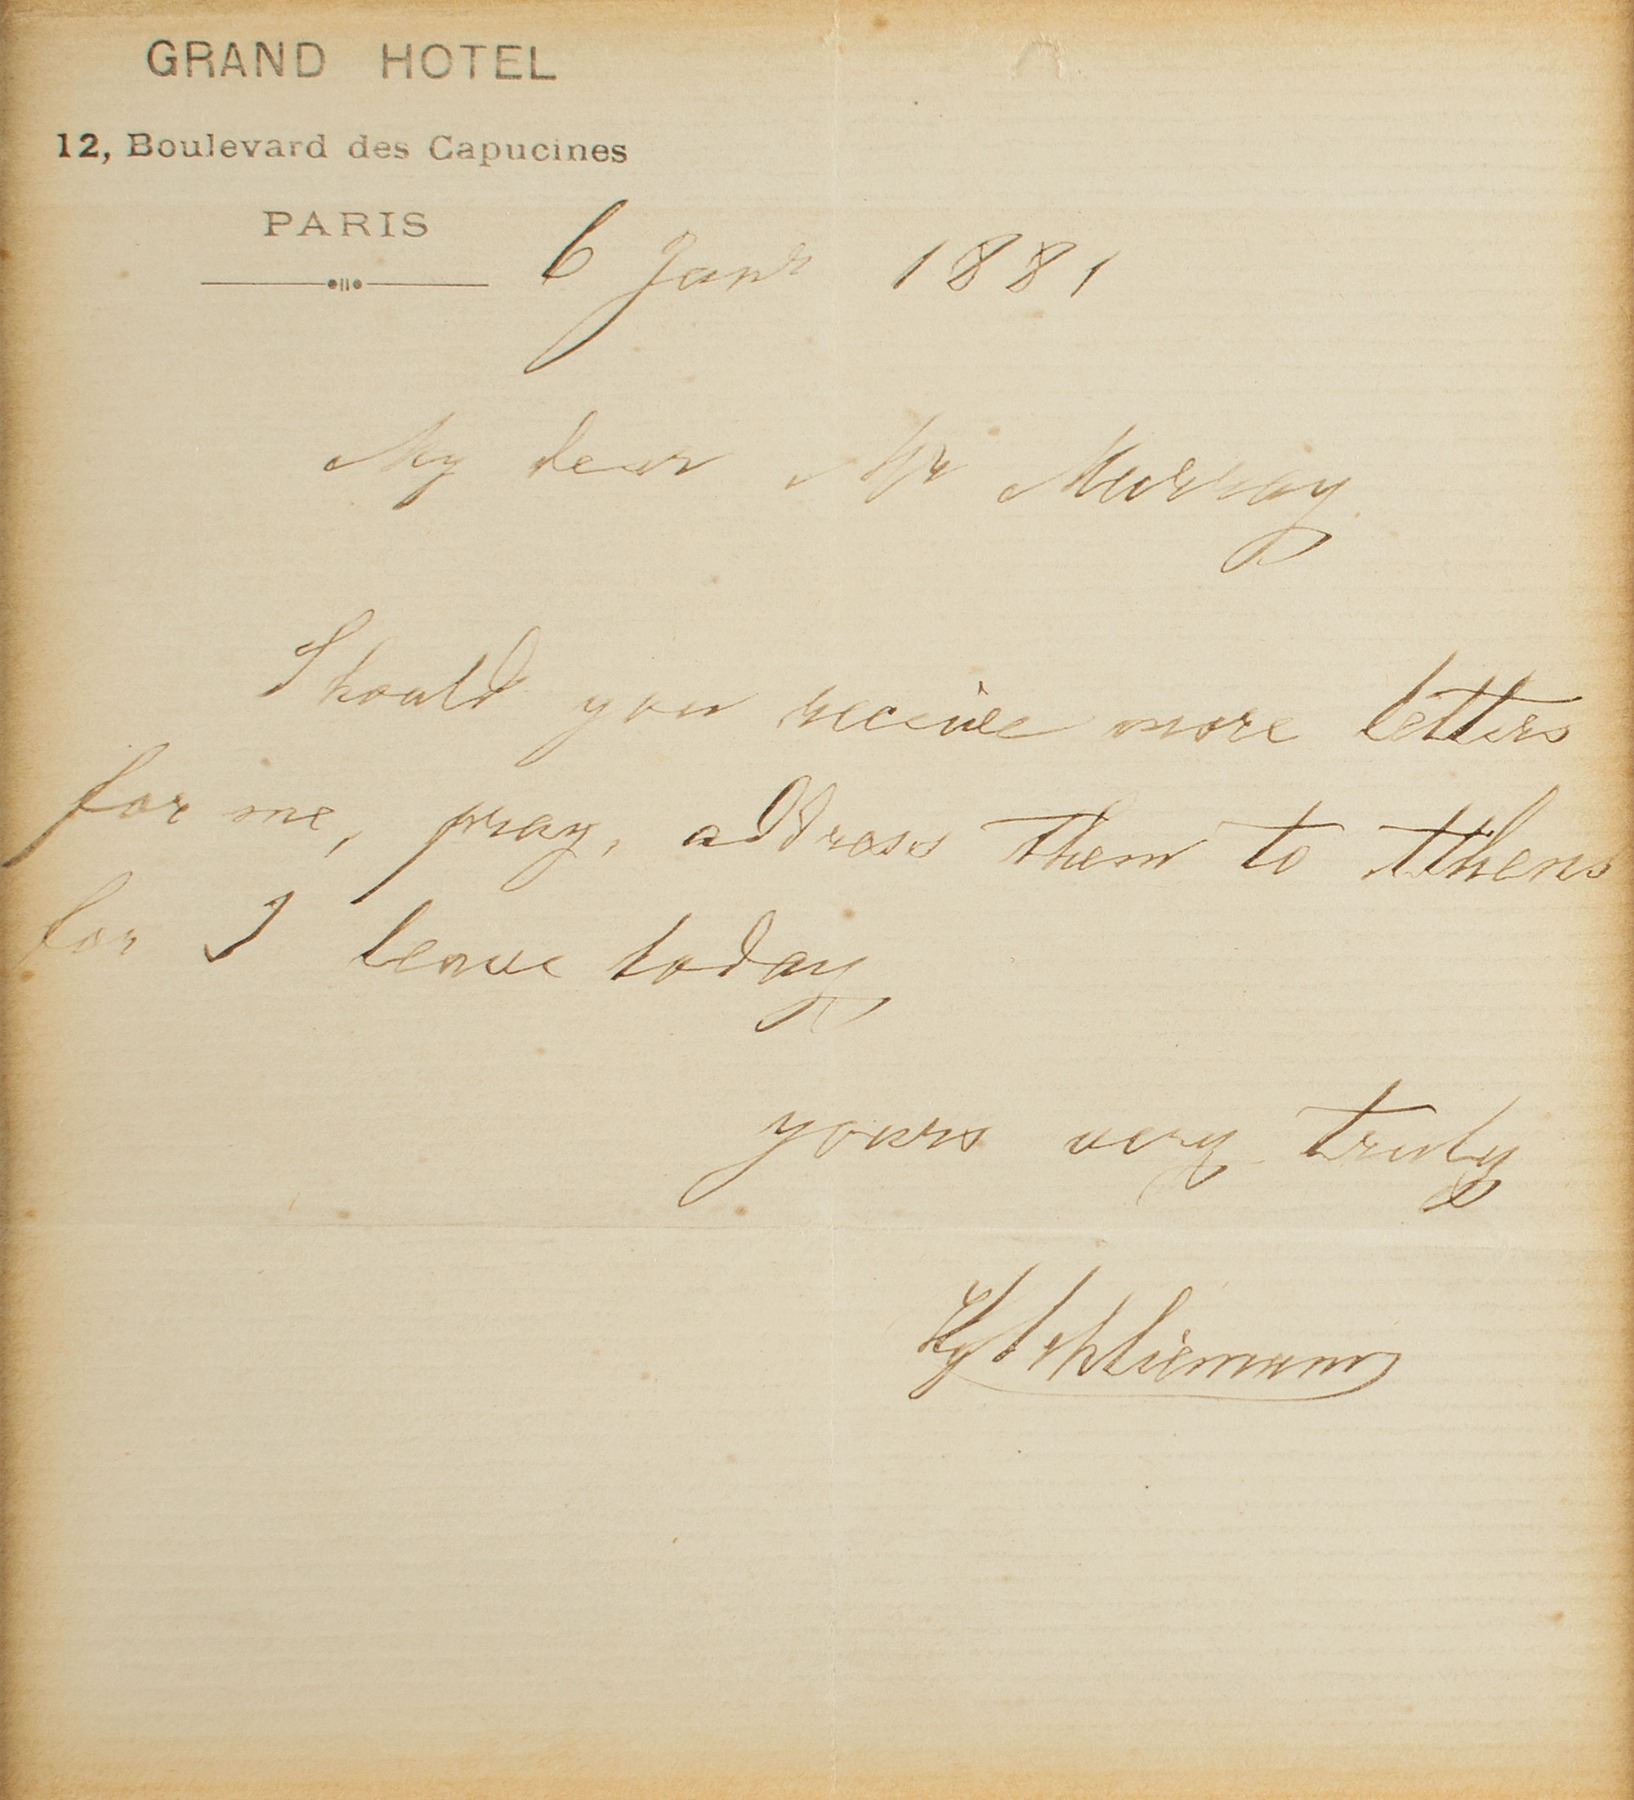 GRAND HOTEL
12, Boulevard des Capucines
PARIS
6 Janr 1881
My dear Mr Murray
Should you receive more letters
for me, pray, address them to Athens
for I leave today
yours very truly
Hy Schliemann